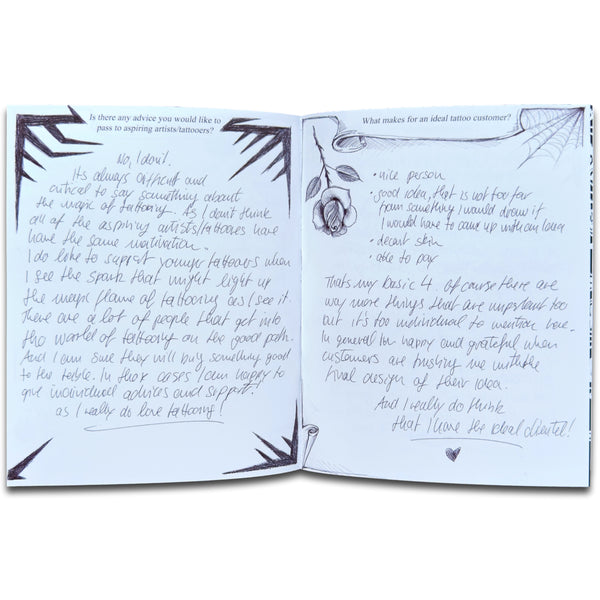 Is there any advice you would like to
pass to aspiring artists/tattooers?
No, I don't.
Its always difficult and
critical to say something about
the magic of tattooing. As I don't think
all of the aspiring artists/tattooers have
have the same motivation.
I do like to support younger tattooers when
I see the spark that might light up
the magic flame of tattooing as I see it.
There are a lot of people that get into
the world of tattooing on the good path.
And I am sure they will bring something good
to the table. In their cases I am happy to
give individual advices and support!
as I really do love tattooing!
What makes for an ideal tattoo customer?
• nice person
• good idea, that is not too far
from something I would draw if
I would have to came up with an Idea
• decent skin
• able to pay
Thats my basic 4. of course there are
way more things that are important too
but it's too individual to mention here.
In general Im happy and grateful when
customers are trusting me with the
final design of their idea.
And I really do think
that I have the ideal clientel!